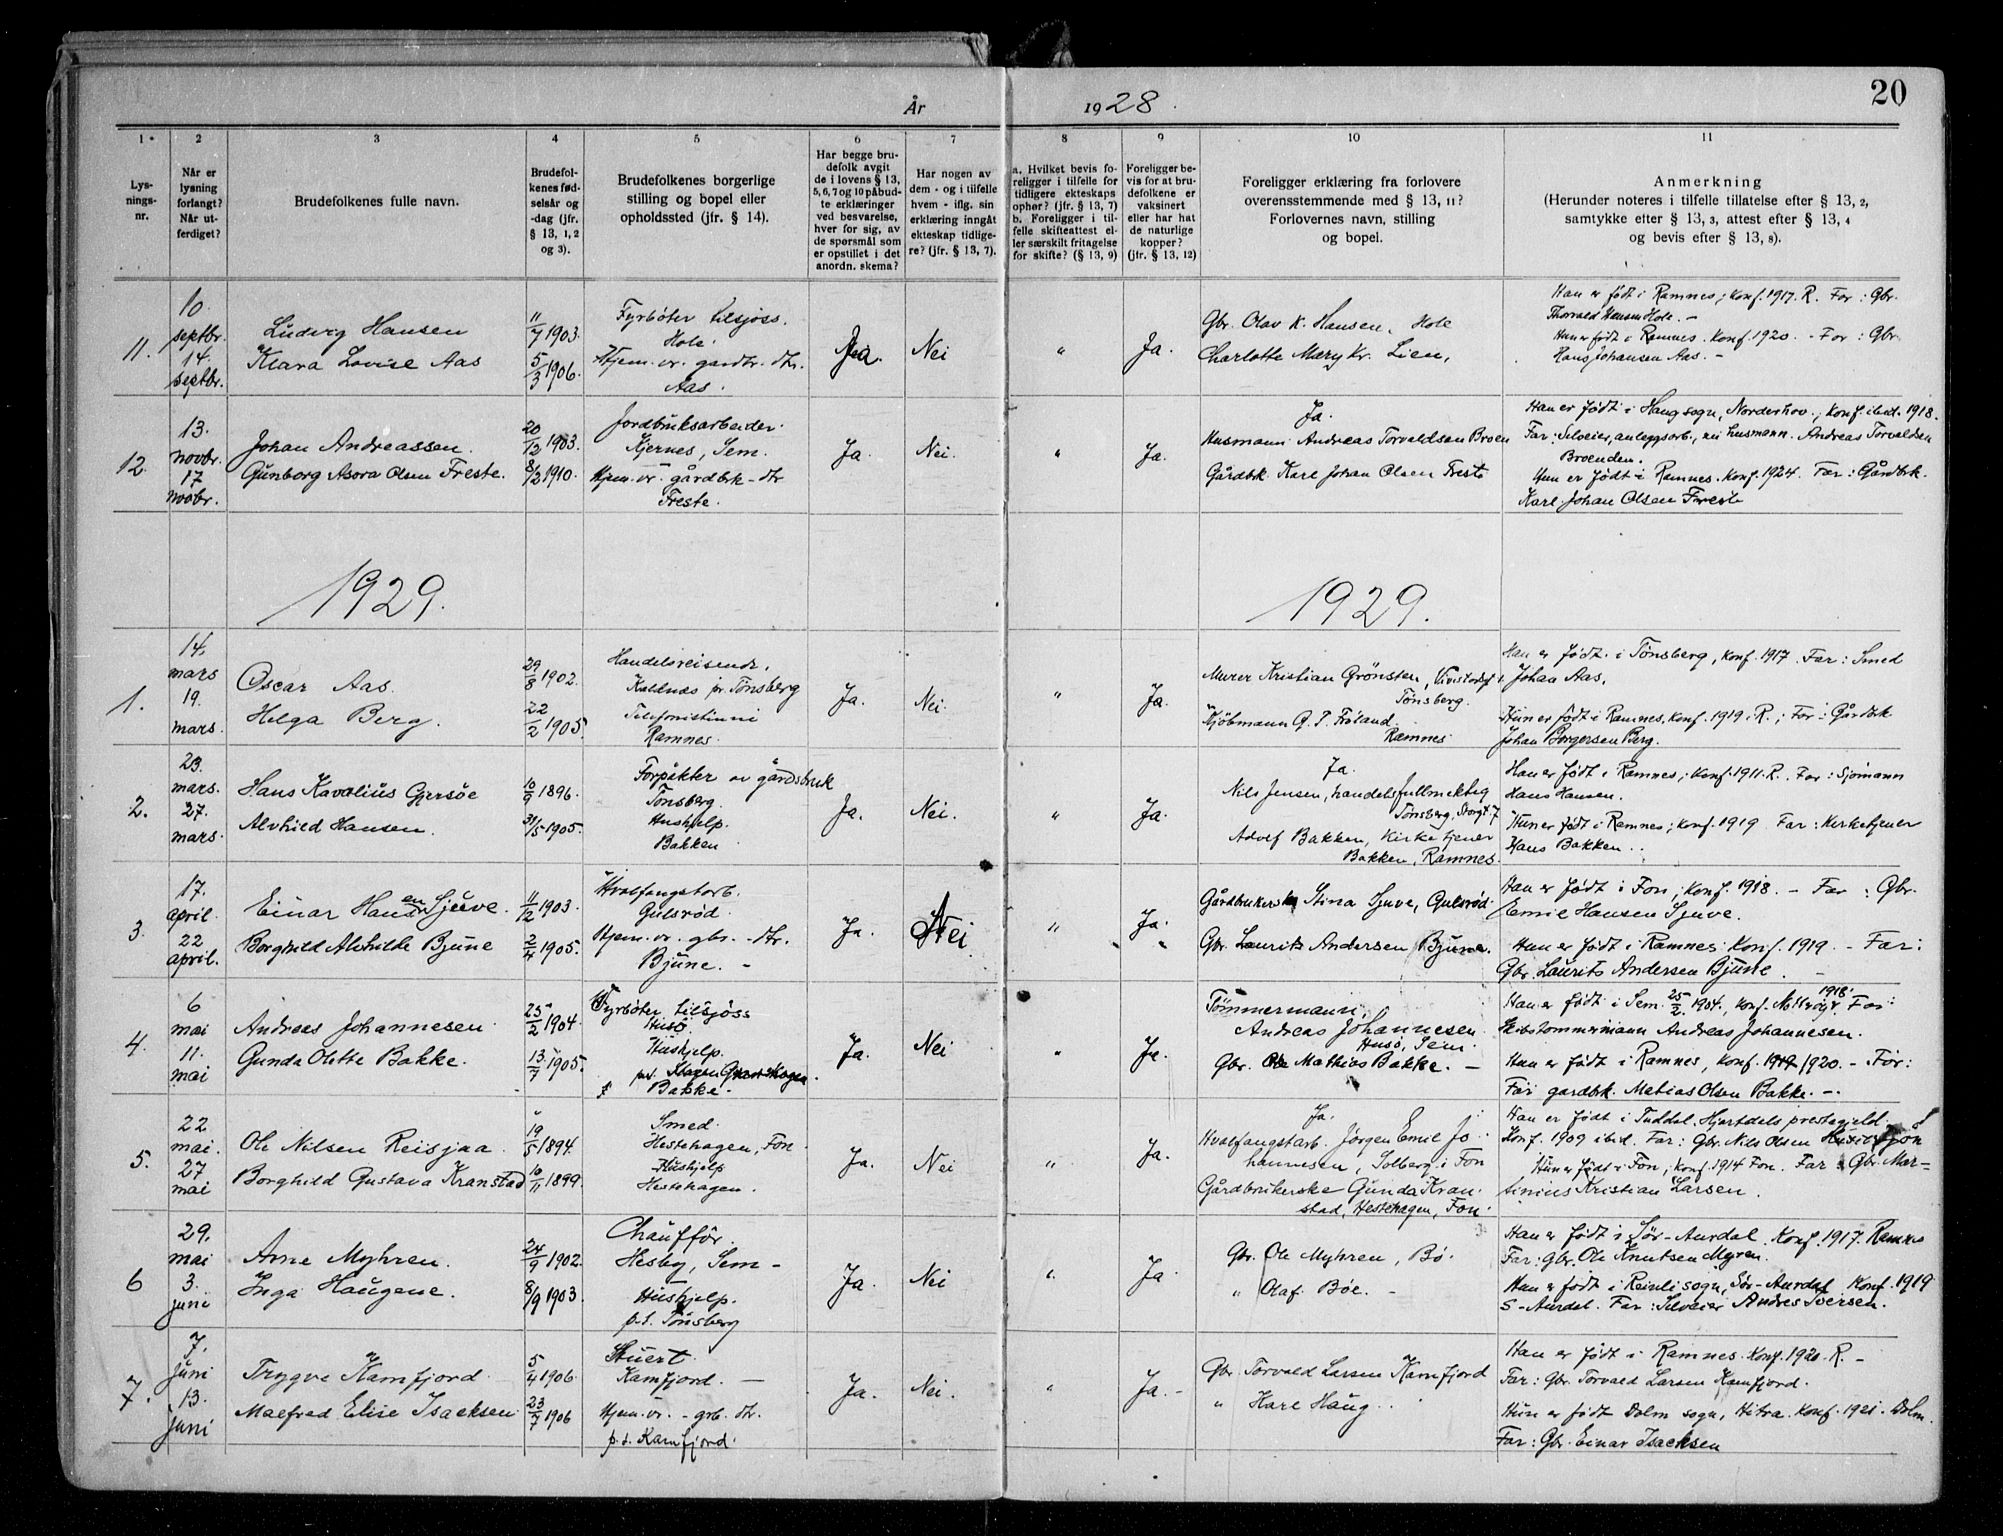 År 1928. 20
1 2 3 4 5 6 7 8 9 10 11
Lys-
nings-
nr.
Når er
lysning
forlangt?
Når ut-
ferdiget?
Brudefolkenes fulle navn.
Brudefol-
kenes fød-
selsår og
-dag (jfr.
§ 13, 1, 2
og 3).
Brudefolkenes borgerlige
stilling og bopel eller
opholdssted (jfr. § 14).
Har begge bru-
defolk avgit
de i lovens § 13,
5, 6, 7 og 10 påbud-
te erklæringer
ved besvarelse,
hver for sig, av
de spørsmål som
er opstillet i det
anordn. skema?
Har nogen av
dem - og i tilfelle
hvem - iflg. sin
erklæring inngåt
ekteskap tidlige-
re? (jfr. § 13, 7).
a. Hvilket bevis fo-
religger i tilfelle for
tidligere ekteskaps
ophør? (jfr. § 13, 7)
b. Foreligger i til-
felle skifteattest el-
ler særskilt fritagelse
for skifte? (§ 13, 9)
Foreligger be-
vis for at bru-
defolkene er
vaksinert
eller har hat
de naturlige
kopper?
(jfr. § 13, 12)
Foreligger erklæring fra forlovere
overensstemmende med § 13, 11?
Forlovernes navn, stilling
og bopel.
Anmerkning
(Herunder noteres i tilfelle tillatelse efter § 13, 2,
samtykke efter § 13, 3, attest efter § 13, 4
og bevis efter § 13, 8).
11.
10
septbr.
14.
septbr.
Ludvig Hansen
Klara Lovise Aas
11/7 1903.
5/3 1906.
Fyrbøter tilsjøss.
Hole.
Hjem. vr. gardbr. dtr.
Aas.
Ja.
Nei
"
Ja.
Gbr. Olav K. Hansen, Hole
Charlotte Mary Kr. Lien,
Han er født i Ramnes; Konf. 1917. R. Far: Gbr.
Thorvald Hansen Hole. -
Hun er født i Ramnes. Konf. 1920. - Far: Gbr.
Hans Johansen Aas. -
12.
13.
novbr.
17
novbr.
Johan Andreassen.
Gunborg Asora Olsen Freste.
20/12 1903.
8/12 1910.
Jordbruksarbeider.
Kjernes, Sem.
Hjem. vr. gårdbrk-dtr
Freste.
Ja.
Nei.
"
Ja.
Ja.
Husmann Andreas Torvaldsen Broen
Gårdbk. Karl Johan Olsen Freste
Han er født i Haug sogn, Norderhov; Konf. ibid. 1918.
Far: Selveier, anleggsarb., nu husmann. Andreas Torvaldsen
Broenden.
Hun er født i Ramnes. Konf. 1924. Far: Gårdbrk.
Karl Johan Olsen Freste
1929. 1929.
1.
14.
mars
19.
mars.
Oscar Aas.
Helga Berg.
29/8 1902.
22/2 1905.
Handelsreisende.
Kaldnæs pr. Tønsberg
Telefonistinni
Ramnes.
Ja.
Nei.
"
Ja.
Murer Kristian Grönsten,
Tønsberg.
Kjøbmann G. T. Fröland.
Ramnes.
Han er født i Tønsberg, Konf. 1917. Far: Smed
Johan Aas.
Hun er født i Ramnes, Konf. 1919. R.; Far: Gårdbk
Johan Borgersen Berg.
2.
23.
mars.
27.
mars.
Hans Kavalius Gjersöe
Alvhild Hansen.
10/9 1896.
31/5 1905.
Forpakter av gårdsbruk
Tønsberg.
Hushjelp.
Bakken
Ja.
Nei.
"
Ja.
Ja.
Nils Jensen, handelsfullmektig
Tønsberg, Storgt. 7
Adolf Bakken, Kirketjener
Bakken, Ramnes.
Han er født i Ramnes; Konf. 1911. R. Far: Sjømann
Hans Hansen.
Hun er født i Ramnes; Konf. 1919 Far: Kirketjener
Hans Bakken.
3.
17.
april.
22
april.
Einar Hansen Sjuve.
Borghild Alvhilde Bjune
11/12 1903.
2/4 1905.
Hvalfangstarb.
Gulsrød.
Hjem. vr. gbr. - dtr.
Bjune. -
Ja.
Nei
"
Ja.
Gårdbrukerske Stina Sjuve, Gulsrød
Gbr. Laurits Andersen Bjune.
Han er født i Fon; Konf. 1918. - Far: Gbr.
Emil Hansen Sjuve.
Hun er født i Ramnes. Konf. 1919 - Far:
Gbr. Laurits Andersen Bjune. -
4.
6
mai
11.
mai
Andreas Johannesen.
Gunda Olette Bakke.
25/2 1904.
13/7 1905.
Fyrbøter tilsjøss
Husö.
Hushjelp.
Bakke.
Ja.
Nei
"
Ja.
Tømmermann,
Andreas Johannesen
Husø, Sem.
Gbr. Ole Mathias Bakke. -
Han er født i Sem 25/2 1904, Konf. Nøtterøy 1918. Far:
Skibstømmermann Andreas Johannesen.
Hun er født i Ramnes, Konf. 1919 1920. - Far:
Far gardbrk. Matias Olsen Bakke. -
5.
22
mai.
27
mai
Ole Nilsen Reisjaa
Borghild Gustava Kranstad
19/5 1894.
10/11 1899.
Smed.
Hestehagen, Fon
Hushjelp
Hestehagen.
Ja.
Nei
"
Ja.
Ja.
Hvalfangstarb. Jørgen Emil Jo-
hannesen, Solberg i Fon
Gårdbrukerske Gunda Kran-
stad, Hestehagen, Fon.
Han er født i Tuddal, Hjartdals prestegjeld.
Konf. 1909 ibid. Far: Gbr. Nils Olsen
Hun er født i Fon; Konf. 1914 Fon. Far: Gbr. Mar-
tinius Kristian Larsen.
6
29.
mai
3.
juni
Arne Myhren.
Inga Haugene.
24/9 1902.
8/9 1903.
Chauffør.
Hesby, Sem -
Hushjelp.
p.t. Tønsberg
Ja.
Nei
"
Ja
Gbr. Ole Myhren, Bø.
" Olaf Bøe. -
Han er født i Sør-Aurdal. Konf. 1917. Ramnes
Far: Gbr. Ole Knutsen Myren.
Hun er født i Reinli sogn, Sør-Aurdal Konf. 1919
S-Aurdal. Far: Selveier Andres Iversen.
7.
7.
juni
13.
juni
Trygve Kamfjord
Maelfred Elise Isacksen
5/4 1906.
23/7 1906
Stuert.
Kamfjord. -
Hjem. vr. - grb. dtr.
p.t. Kamfjord.
Ja.
Nei.
"
Ja. -
Gbr. Torvald Larsen Kamfjord
" Karl Haug.
Han er født i Ramnes. Konf. 1920. R. -
Far: Gbr. Torvald Larsen Kamfjord.
Hun er født Dolm sogn, Hitra. Konf. 1921. Dolm.
Far: Gbr. Einar Isacksen